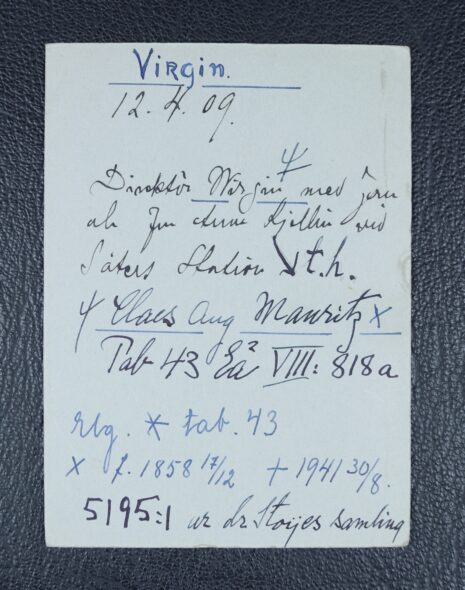 Virgin.
12.4.09.
4
Direktör Wirgin med
och Fru Anna Kjellin vid
Säters Station t.h.
4 Claes Aug Mauritz x
Tab 43 VIII: 818a
rlg. * tab. 43
x f. 1858 17/12 + 1941 30/8.
5195:1 ur dr Stoijes samling